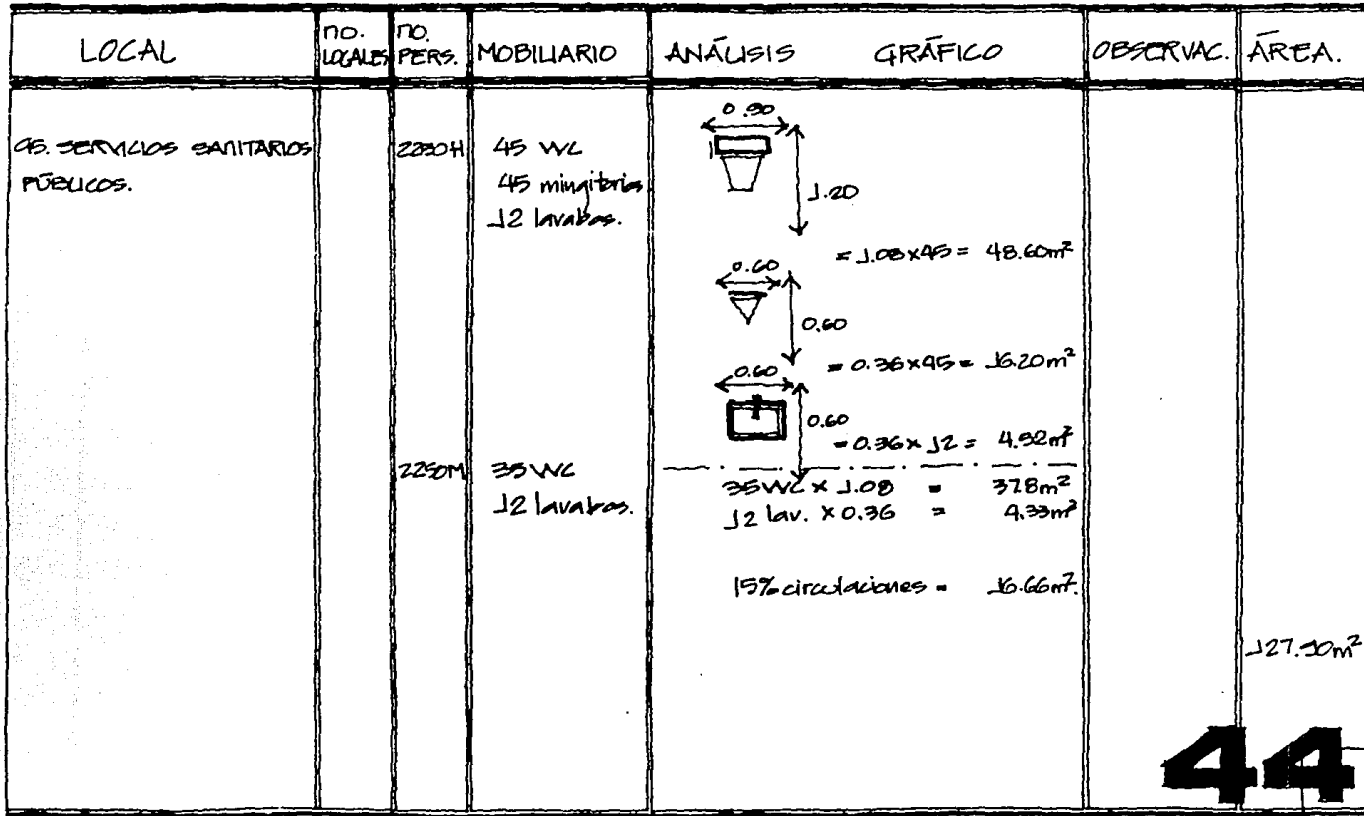 LOCAL
no. LOCALES
no. PERS.
MOBILIARIO
ANÁLISIS GRÁFICO
OBSERVAC.
ÁREA.
SERVICIOS SANITARIOS
PÚBLICOS.
2250H
45 WC
45 mingitorios
12 lavabos.
0.90
1.20
= 1.08x45 = 48.60m²
0.60
0.60
= 0.36x45 = 16.20m²
0.60
0.60
= 0.36x12 =
2250M
35 WC
12 lavabos.
35WC x 1.08 = 37.8m²
12 lav. x 0.36 = 4.33m²
15% circulaciones = 16.66m².
127.90m²
44